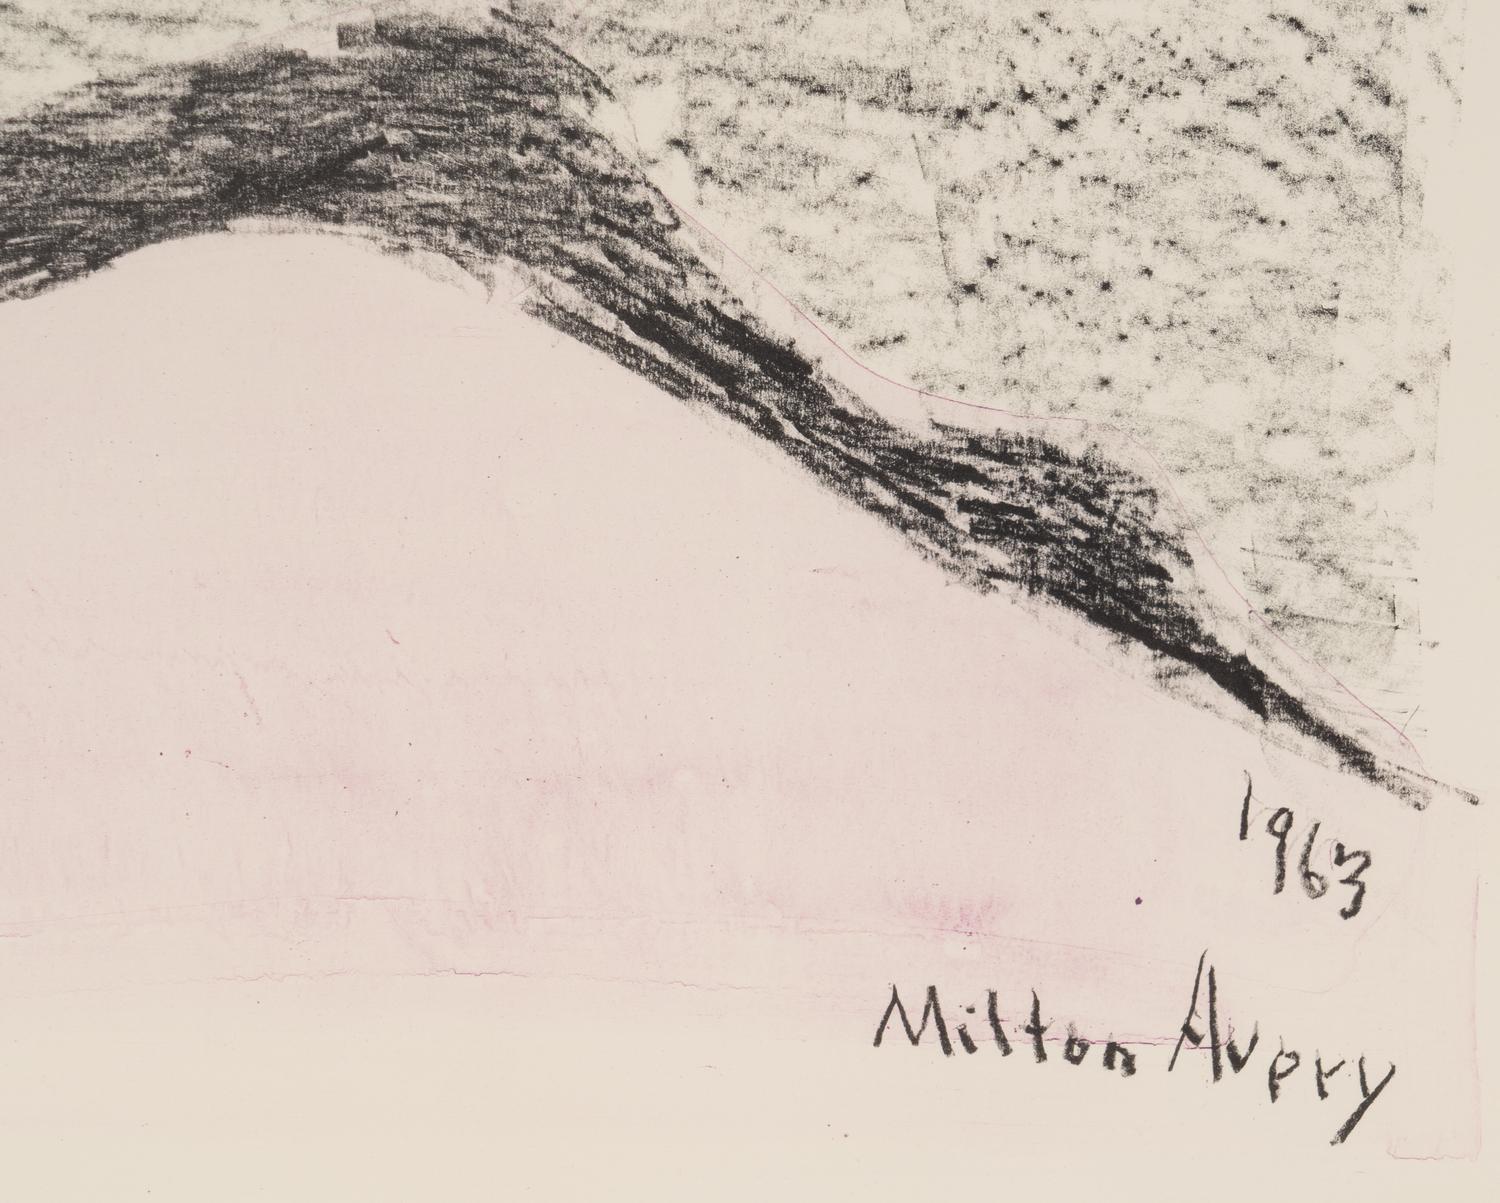 1963
Milton Avery